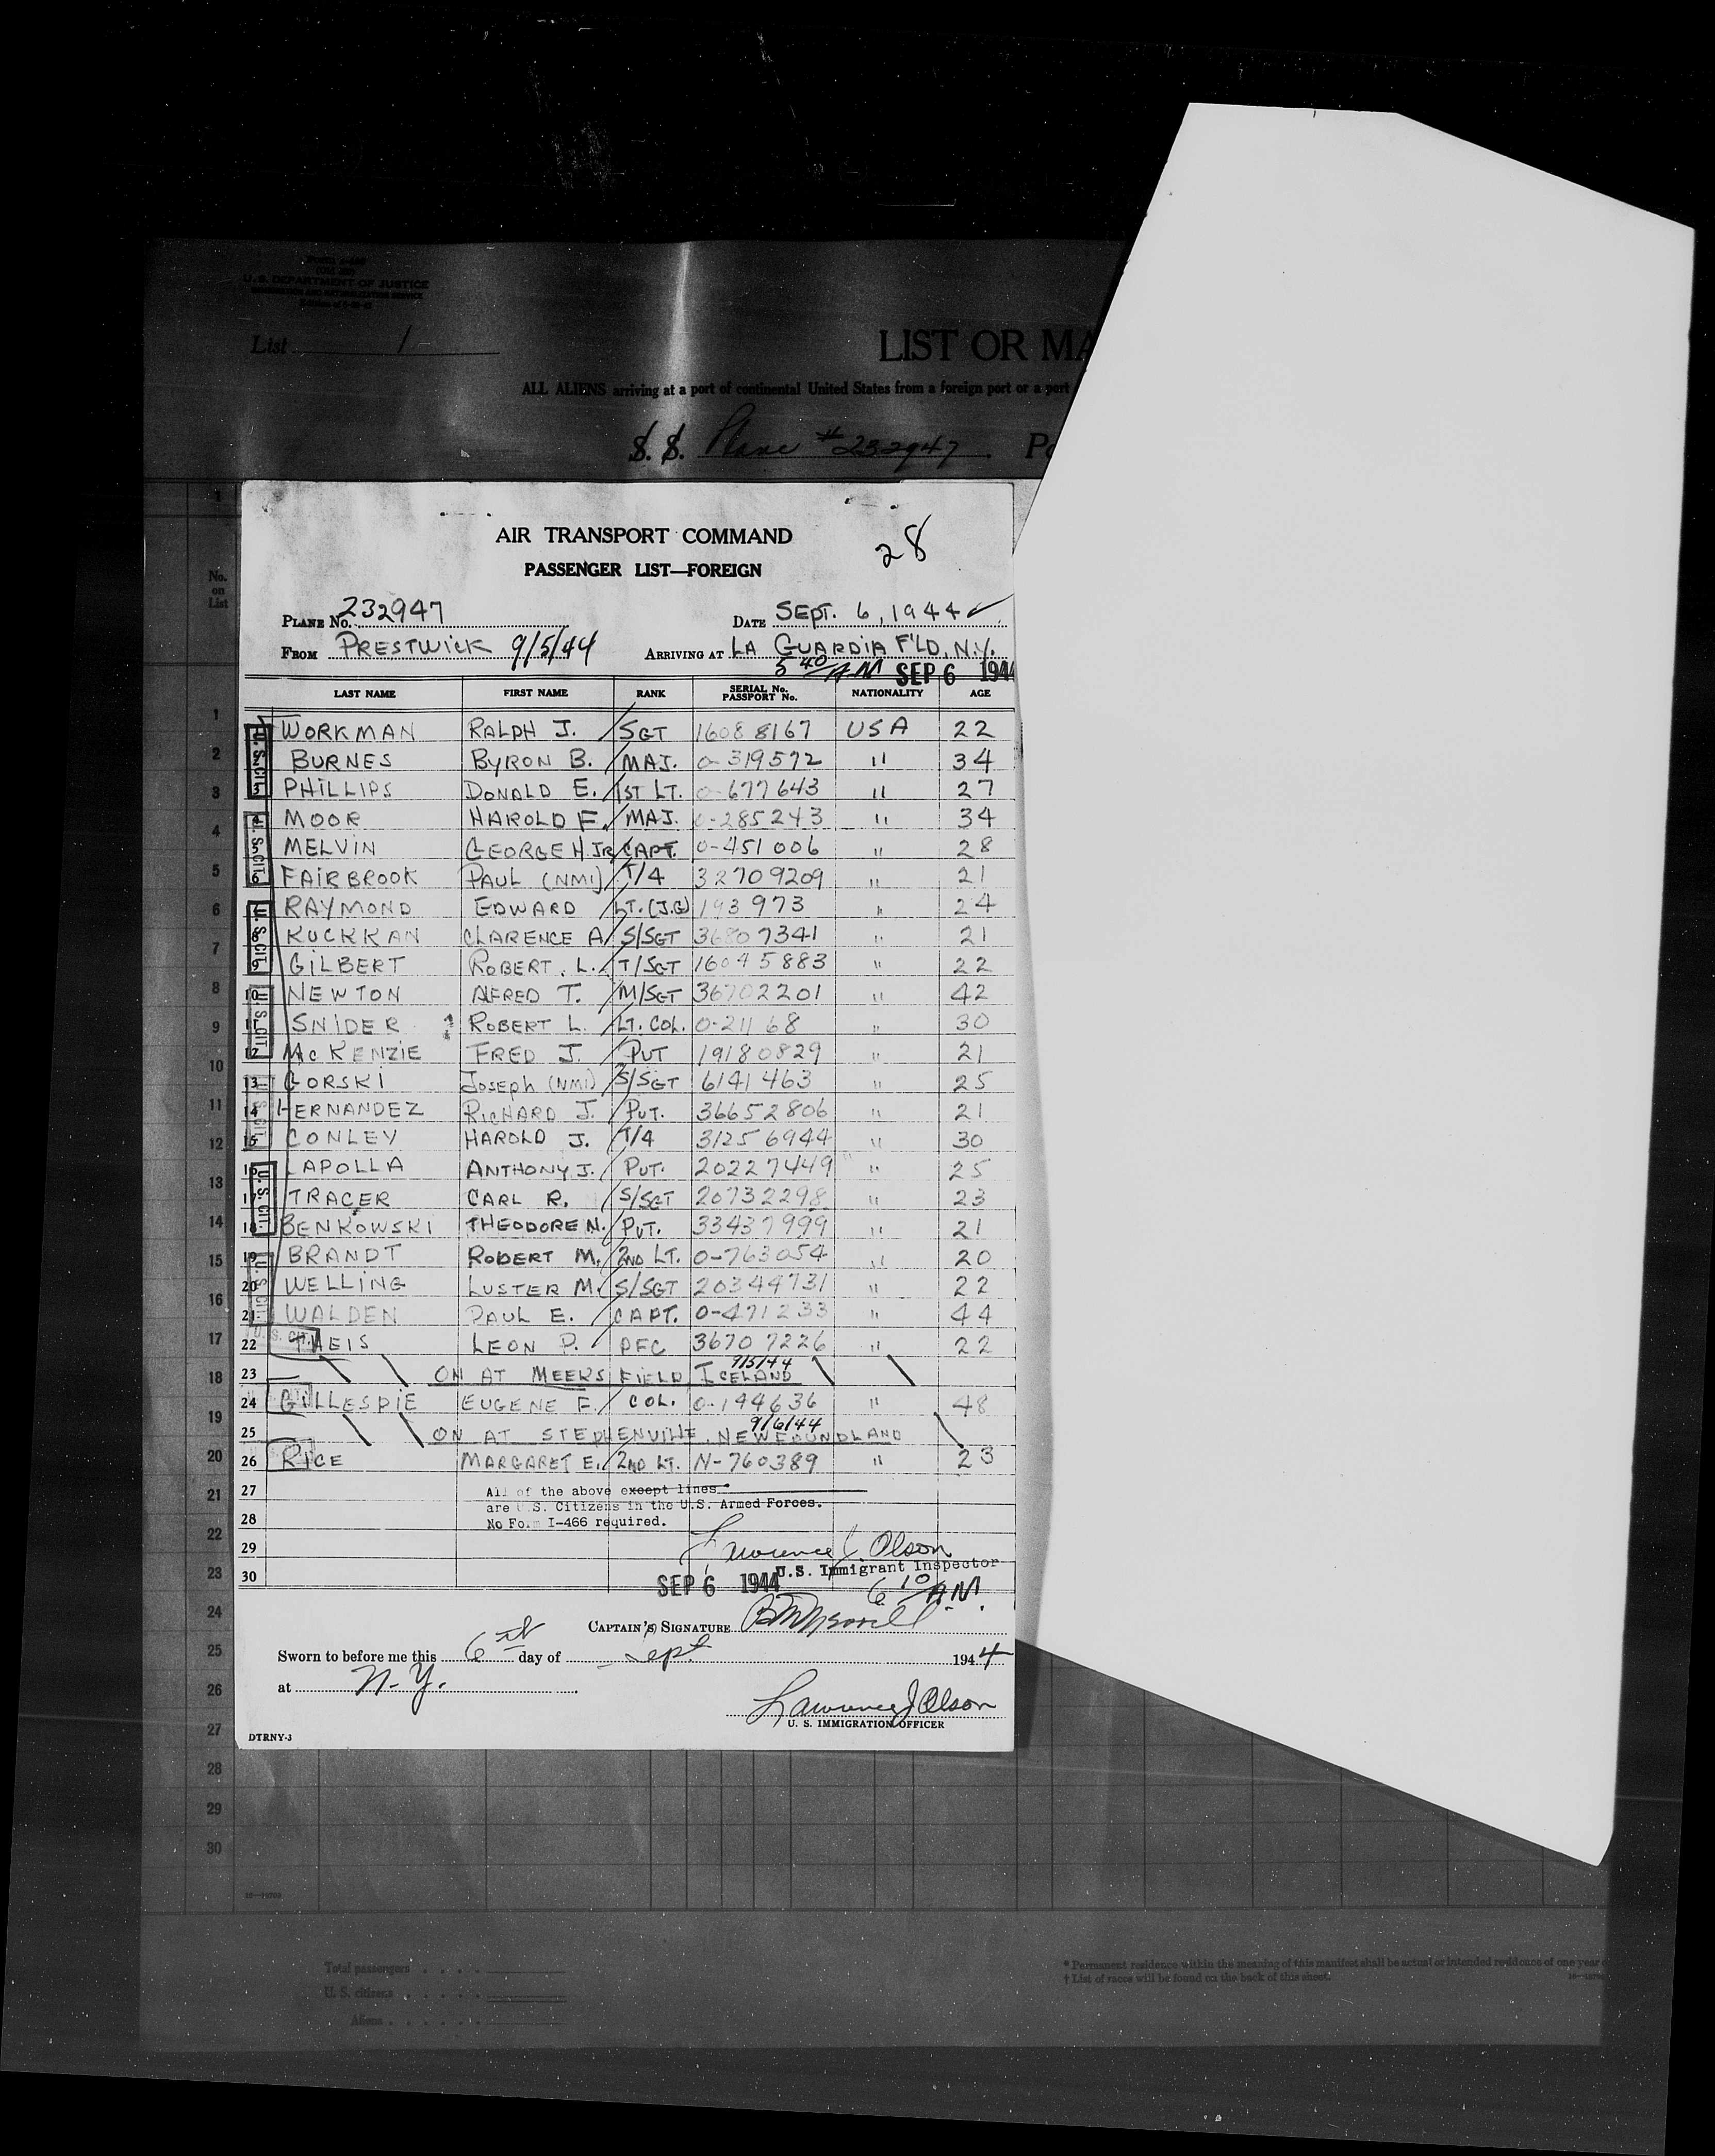 U. S. DEPARTMENT OF JUSTICE
IMMIGRATION AND NATURALIZATION SERVICE
List 1
LIST OR MA
ALL ALIENS arriving at a port of continental United States from a foreign port or a port
S. S. Plane #232947. Po
No. on List
AIR TRANSPORT COMMAND
28
PASSENGER LIST—FOREIGN
PLANE No. 232947 DATE SEPT. 6, 1944
FROM PRESTWICK 9/5/44 ARRIVING AT LA GUARDIA F'LD, N.Y.
5 40 AM SEP 6 1944
LAST NAME FIRST NAME RANK SERIAL No. PASSPORT No. NATIONALITY AGE
WORKMAN RALPH J. SGT 16088167 USA 22
2 BURNES BYRON B. MAJ. O-319572 " 34
3 PHILLIPS DONALD E. 1ST LT. O-677643 " 27
4 MOOR HAROLD F. MAJ. O-285243 " 34
5 MELVIN GEORGE H JR CAPT. O-451006 " 28
6 FAIRBROOK PAUL (NMI) T/4 32709209 " 21
RAYMOND EDWARD LT. (J.G) 193973 " 24
8 KUCKKAN CLARENCE A S/SGT 36807341 " 21
9 GILBERT ROBERT. L. T/SGT 16045883 " 22
10 NEWTON ALFRED T. M/SGT 36702201 " 42
11 SNIDER ? ROBERT L. LT. COL. O-21168 " 30
12 McKENZIE FRED J. PVT 19180829 " 21
13 GORSKI JOSEPH (NMI) S/SGT 6141463 " 25
14 HERNANDEZ RICHARD J. PVT. 36652806 " 21
15 CONLEY HAROLD J. T/4 31256944 " 30
16 LAPOLLA ANTHONY J. PVT. 20227449 " 25
17 TRACER CARL R. S/SGT 20732298 " 23
18 BENKOWSKI THEODORE N. PVT. 33437999 " 21
19 BRANDT ROBERT M. 2ND LT. O-763054 " 20
20 WELLING LUSTER M. S/SGT 20344731 " 22
21 WALDEN PAUL E. CAPT. O-471233 " 44
22 THEIS LEON P. PFC 36707226 " 22
23 ON AT MEEKS FIELD ICELAND 9/5/44
24 GILLESPIE EUGENE F. COL. O-194636 " 48
25 ON AT STEPHENVILLE, NEWFOUNDLAND 9/6/44
26 RICE MARGARET E. 2ND LT. N-760389 " 23
27 All of the above except lines
are U.S. Citizens in the U.S. Armed Forces.
28 No Form I-466 required.
29 Lawrence J. Olson
U.S. Immigrant Inspector
30 SEP 6 1944 6 10 AM.
CAPTAIN'S SIGNATURE
Sworn to before me this 6th day of Sept 1944
at N. Y.
Lawrence J Olson
U. S. IMMIGRATION OFFICER
DTRNY-3
Total passengers
U. S. citizens
Aliens
* Permanent residence within the meaning of this manifest shall be actual or intended residence of one year
† List of races will be found on the back of this sheet.